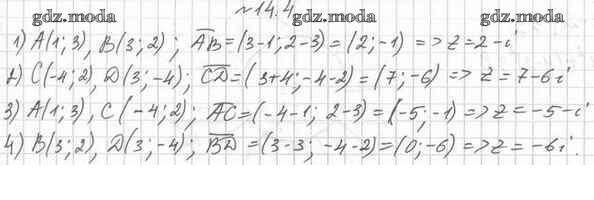 №14.4
gdz.moda gdz.moda
1) A(1;3), B(3;2); AB=(3-1;2-3)=(2;-1) =>z=2-i
2) C(-4;2), D(3;-4); CD=(3+4;-4-2)=(7;-6) => z=7-6i
3) A(1;3), C(-4;2); AC=(-4-1; 2-3)=(-5;-1)=>z=-5-i
4) B(3;2), D(3;-4); BD=(3-3; -4-2)=(0;-6)=>z=-6i.
gdz.moda gdz.moda